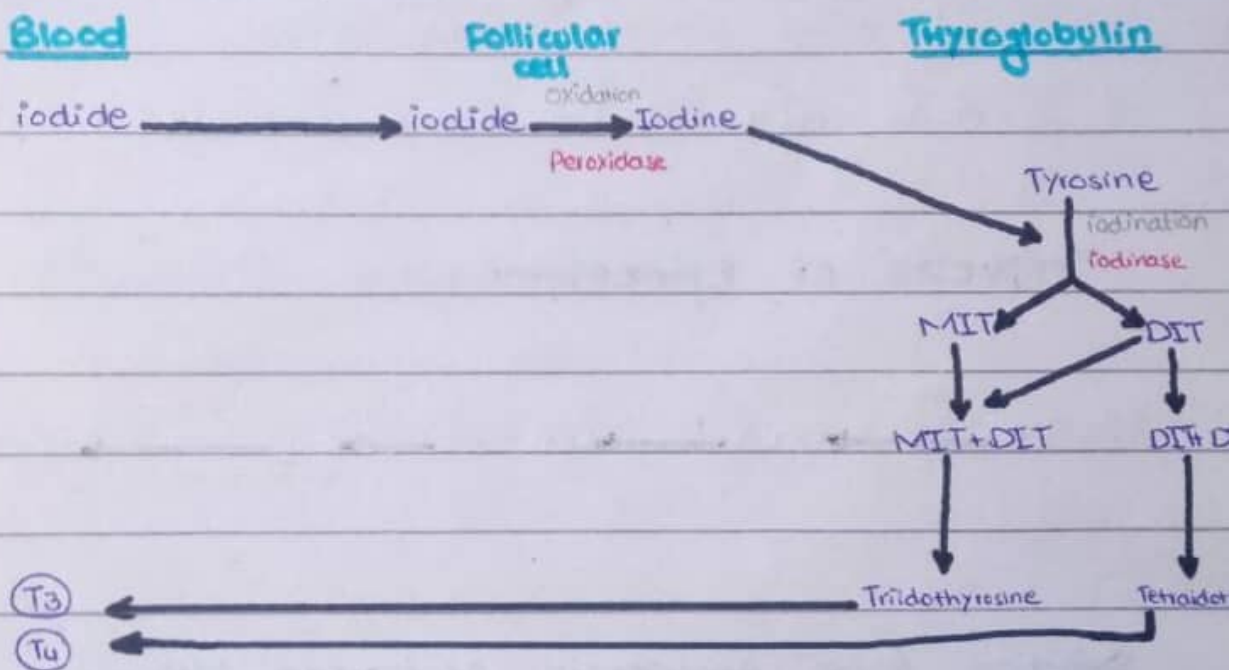 Blood Follicular cell Thyroglobulin
oxidation
iodide iodide Iodine
Peroxidase
Tyrosine
iodination
iodinase
MIT DIT
MIT+DIT DIT+ D
T3 Triidothyrosine Tetraidot
T4